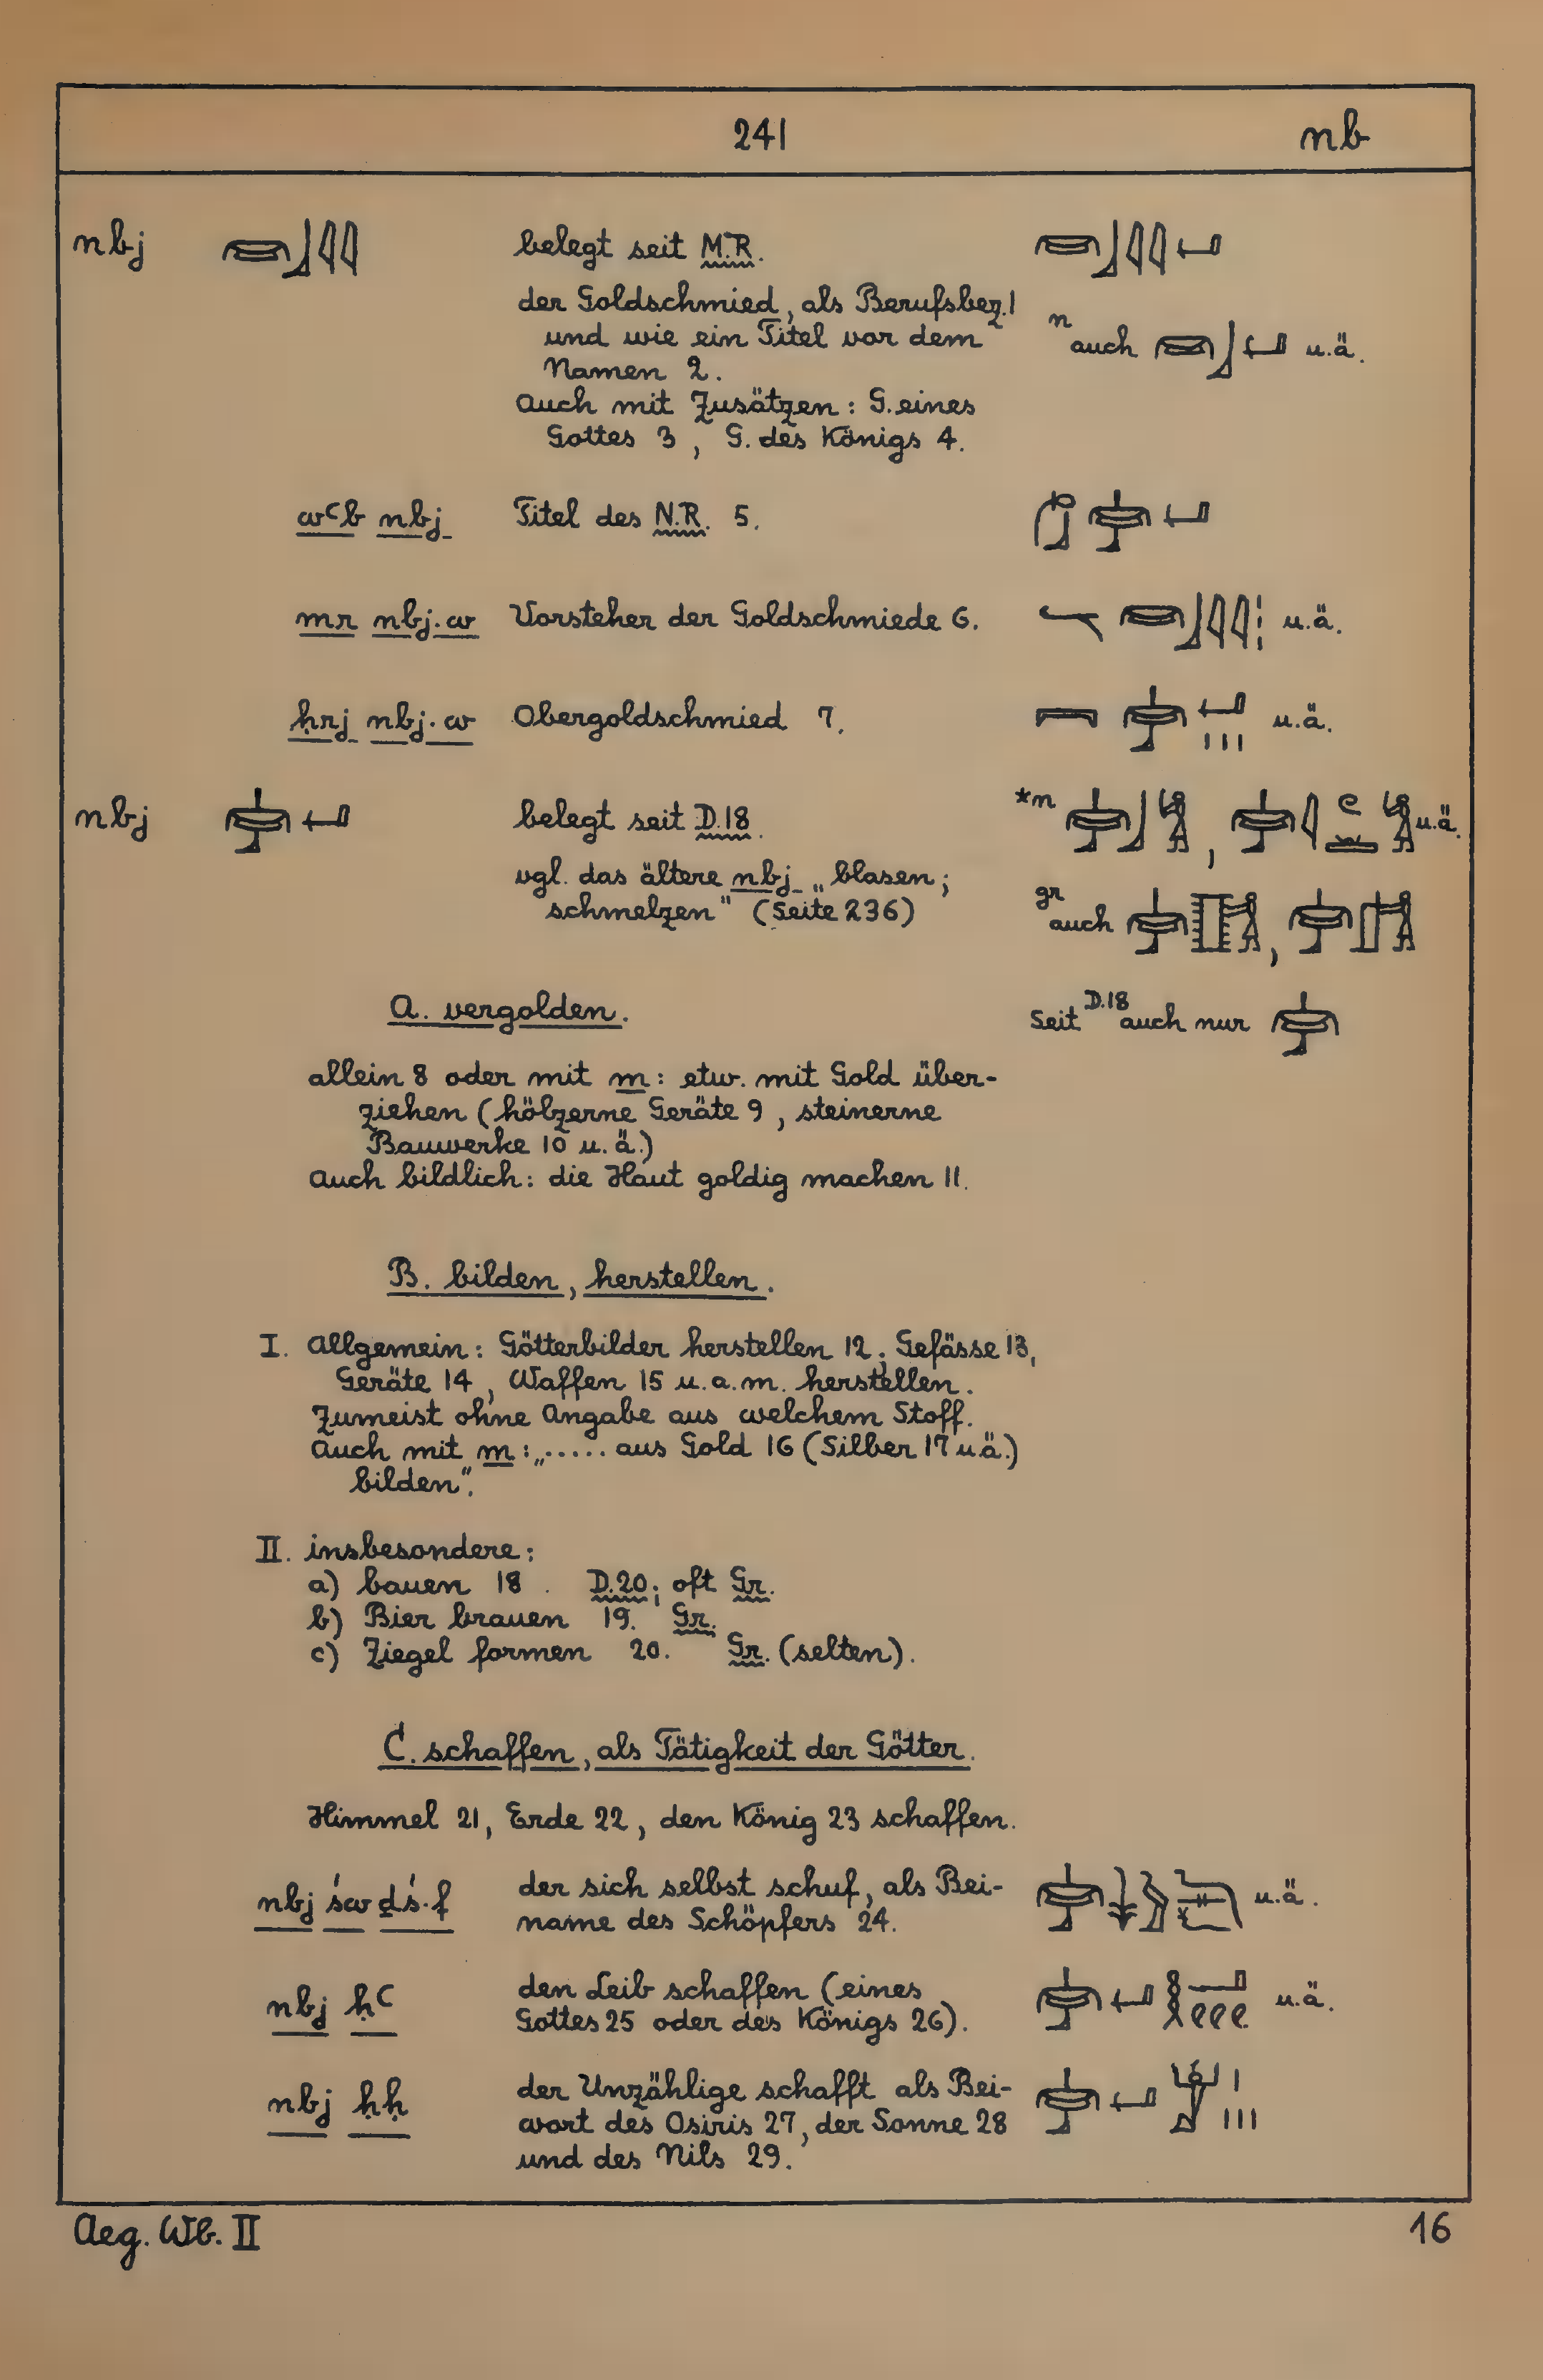 241 nb
nbj belegt seit M.R.
der Goldschmied, als Berufsbez. 1
und wie ein Titel vor dem
Namen 2.
n auch u.ä.
Auch mit Zusätzen: G. eines
Gottes 3, G. des Königs 4.
wꜥb nbj Titel des N.R. 5.
mr nbj.w Vorsteher der Goldschmiede 6. u.ä.
ḥrj nbj.w Obergoldschmied 7. u.ä.
nbj belegt seit D.18. *n , u.ä.
vgl. das ältere nbj „blasen;
schmelzen" (Seite 236)
gr auch ,
A. vergolden.
Seit D.18 auch nur
allein 8 oder mit m: etw. mit Gold über-
ziehen (hölzerne Geräte 9, steinerne
Bauwerke 10 u.ä.)
Auch bildlich: die Haut goldig machen 11.
B. bilden, herstellen.
I. Allgemein: Götterbilder herstellen 12; Gefässe 13,
Geräte 14, Waffen 15 u.a.m. herstellen.
Zumeist ohne Angabe aus welchem Stoff.
Auch mit m: „..... aus Gold 16 (Silber 17 u.ä.)
bilden".
II. insbesondere:
a) bauen 18. D.20; oft Gr.
b) Bier brauen 19. Gr.
c) Ziegel formen 20. Gr. (selten).
C. schaffen, als Tätigkeit der Götter.
Himmel 21, Erde 22, den König 23 schaffen.
nbj św ḏś.f der sich selbst schuf, als Bei-
name des Schöpfers 24. u.ä.
nbj ḥꜥ den Leib schaffen (eines
Gottes 25 oder des Königs 26). u.ä.
nbj ḥḥ der Unzählige schafft als Bei-
wort des Osiris 27, der Sonne 28
und des Nils 29.
Aeg. Wb. II 16